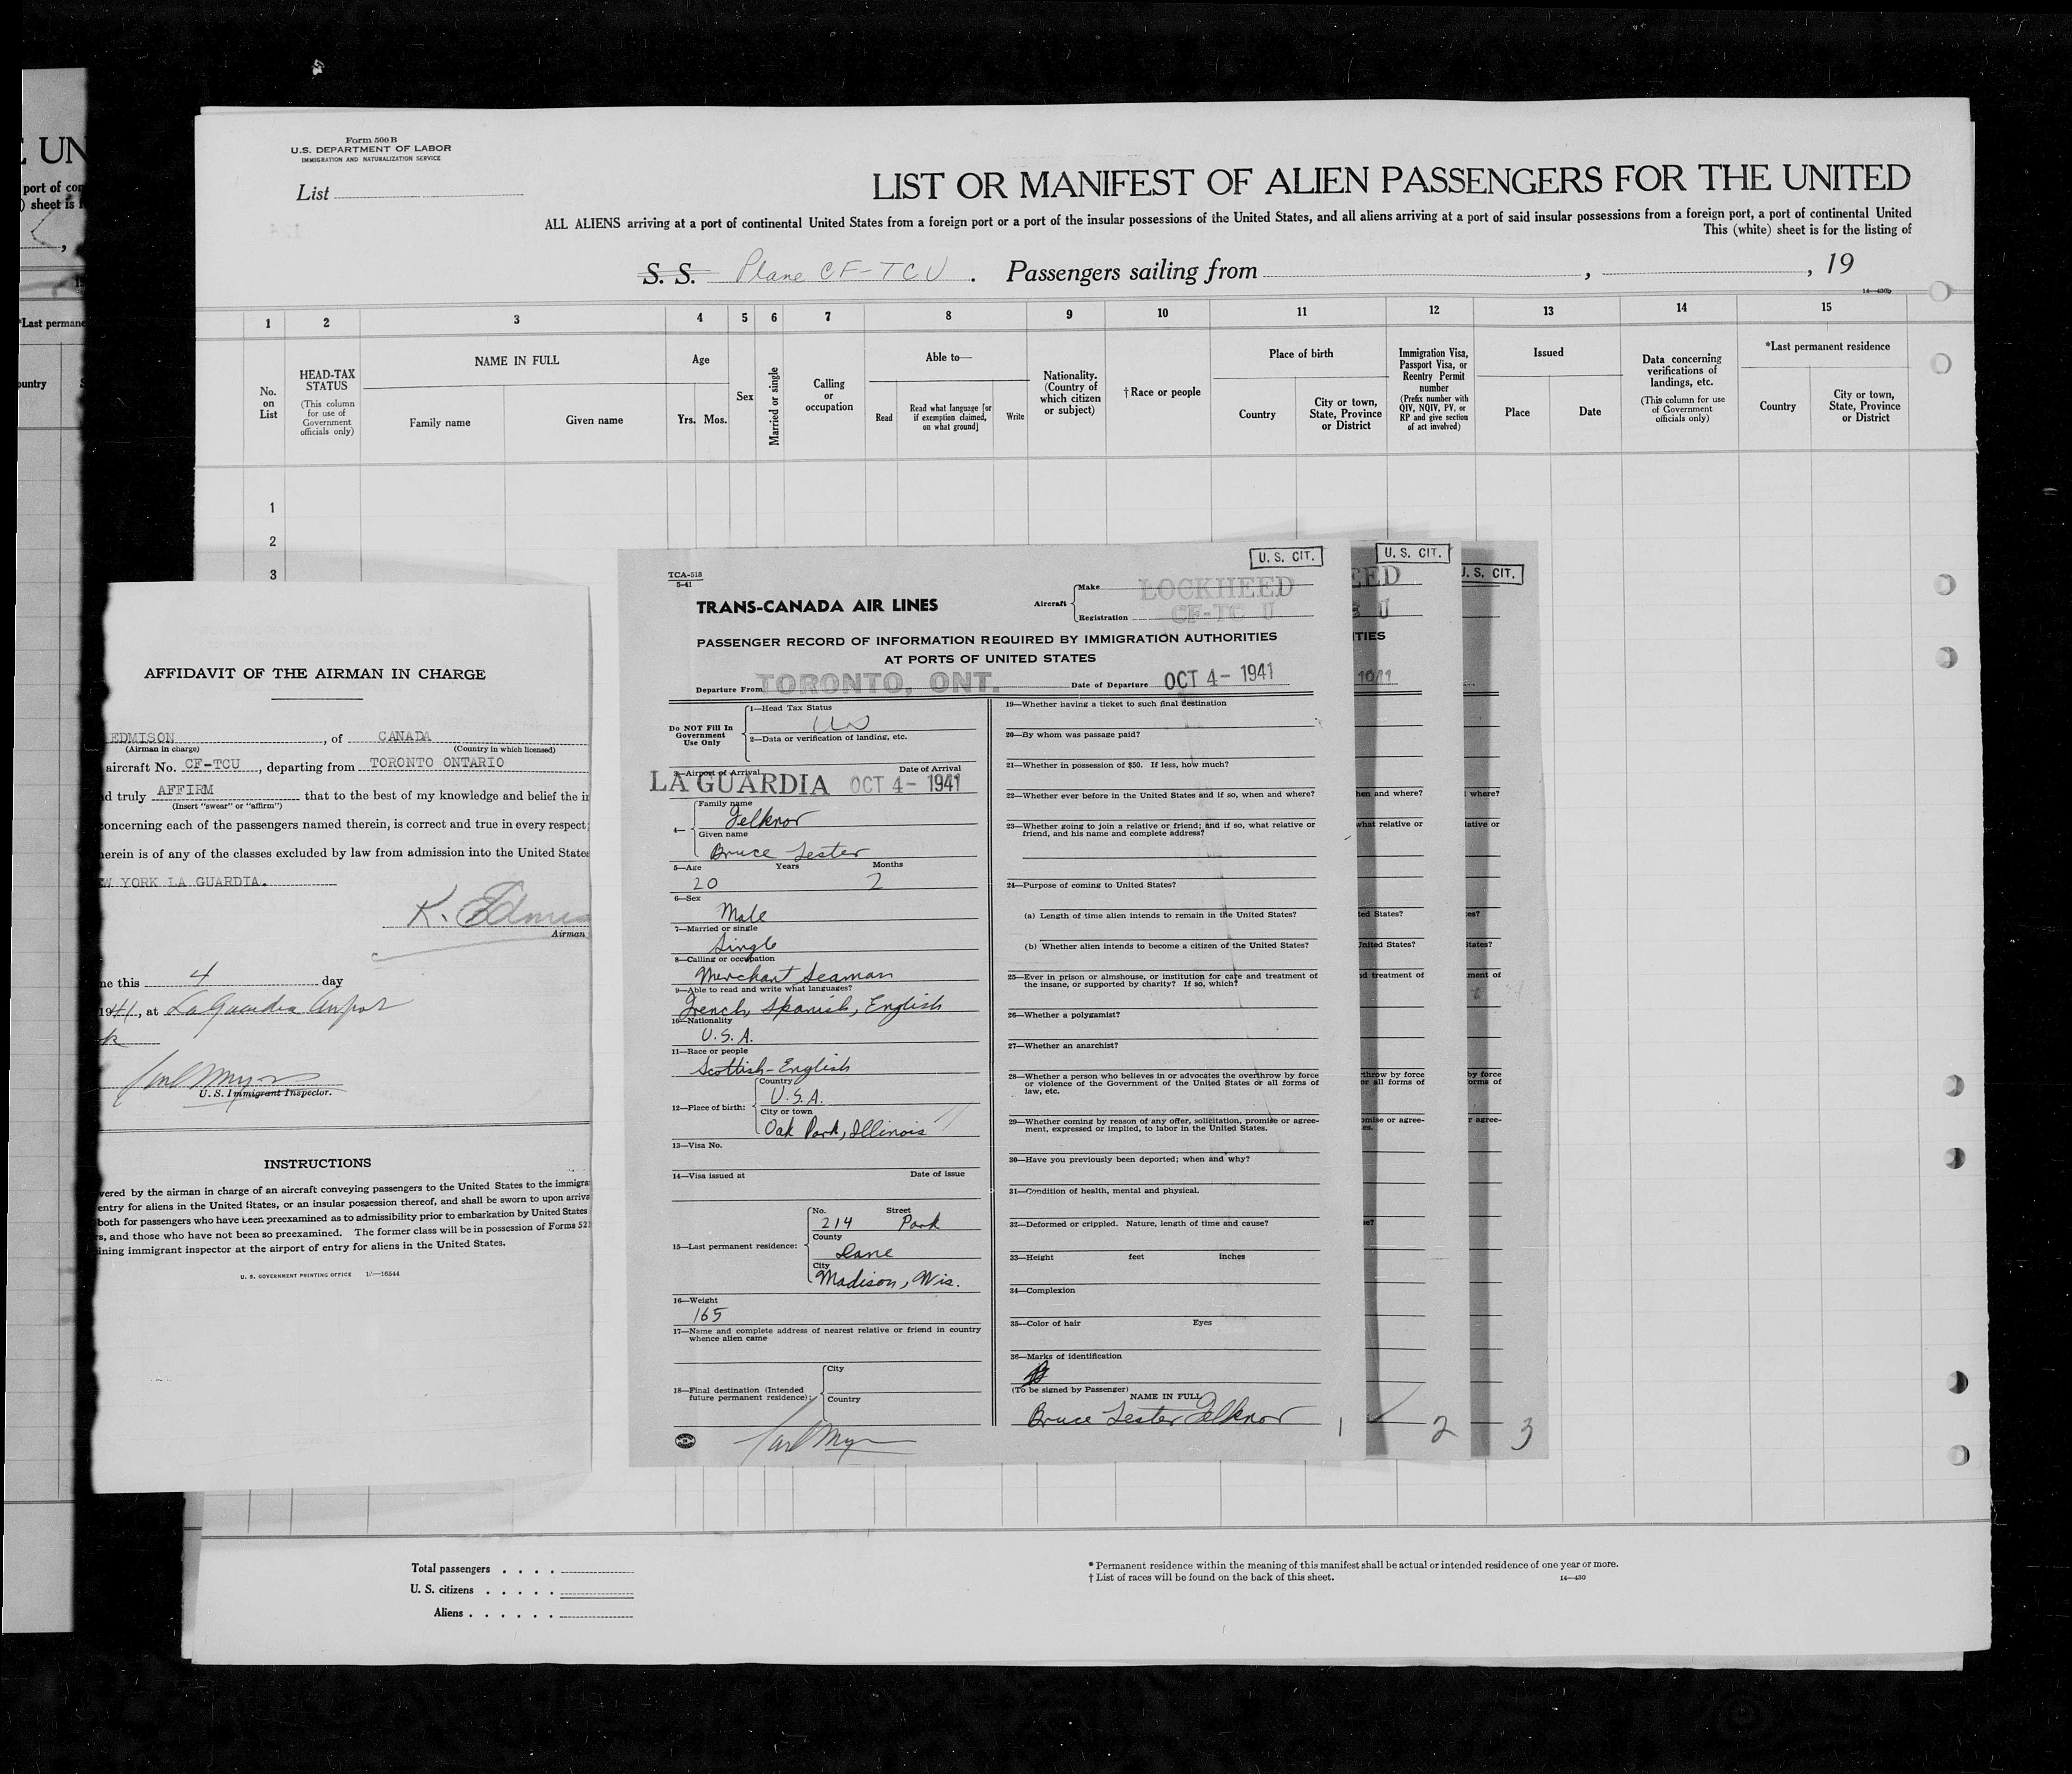 E UN
port of con
) sheet is f
*Last permane
ountry
Form 500 B
U.S. DEPARTMENT OF LABOR
IMMIGRATION AND NATURALIZATION SERVICE
List
LIST OR MANIFEST OF ALIEN PASSENGERS FOR THE UNITED
ALL ALIENS arriving at a port of continental United States from a foreign port or a port of the insular possessions of the United States, and all aliens arriving at a port of said insular possessions from a foreign port, a port of continental United
This (white) sheet is for the listing of
S. S. Plane CF-TCU . Passengers sailing from , , 19
14—430b
1 2 3 4 5 6 7 8 9 10 11 12 13 14 15
No. on List
HEAD-TAX STATUS
(This column for use of Government officials only)
NAME IN FULL
Family name
Given name
Age
Yrs. Mos.
Sex
Married or single
Calling or occupation
Able to—
Read
Read what language [or if exemption claimed, on what ground]
Write
Nationality. (Country of which citizen or subject)
† Race or people
Place of birth
Country
City or town, State, Province or District
Immigration Visa, Passport Visa, or Reentry Permit number
(Prefix number with QIV, NQIV, PV, or RP and give section of act involved)
Issued
Place
Date
Data concerning verifications of landings, etc.
(This column for use of Government officials only)
*Last permanent residence
Country
City or town, State, Province or District
1
2
3
AFFIDAVIT OF THE AIRMAN IN CHARGE
EDMISON , of CANADA
(Airman in charge) (Country in which licensed)
aircraft No. CF-TCU , departing from TORONTO ONTARIO
d truly AFFIRM that to the best of my knowledge and belief the in
(Insert "swear" or "affirm")
oncerning each of the passengers named therein, is correct and true in every respect;
herein is of any of the classes excluded by law from admission into the United States
W YORK LA GUARDIA.
K. Edmis
Airman
ne this 4 day
1941, at La Guardia Airport
U. S. Immigrant Inspector.
INSTRUCTIONS
vered by the airman in charge of an aircraft conveying passengers to the United States to the immigra
entry for aliens in the United States, or an insular possession thereof, and shall be sworn to upon arriva
both for passengers who have been preexamined as to admissibility prior to embarkation by United States
s, and those who have not been so preexamined. The former class will be in possession of Forms 521
ining immigrant inspector at the airport of entry for aliens in the United States.
U. S. GOVERNMENT PRINTING OFFICE 16—16544
U. S. CIT.
U. S. CIT.
U. S. CIT.
TCA-518
5-41
TRANS-CANADA AIR LINES
Aircraft
Make LOCKHEED
Registration CF-TC U
PASSENGER RECORD OF INFORMATION REQUIRED BY IMMIGRATION AUTHORITIES
AT PORTS OF UNITED STATES
Departure From TORONTO, ONT. Date of Departure OCT 4- 1941
Do NOT Fill In Government Use Only
1—Head Tax Status
2—Data or verification of landing, etc.
3—Airport of Arrival Date of Arrival
LA GUARDIA OCT 4- 1941
4—
Family name
Felknor
Given name
Bruce Lester
5—Age Years Months
20 2
6—Sex
Male
7—Married or single
Single
8—Calling or occupation
Merchant Seaman
9—Able to read and write what languages?
French, Spanish, English
10—Nationality
U.S.A.
11—Race or people
Scottish-English
12—Place of birth:
Country
U.S.A.
City or town
Oak Park, Illinois
13—Visa No.
14—Visa issued at Date of issue
15—Last permanent residence:
No. Street
214 Park
County
Dane
City
Madison, Wis.
16—Weight
165
17—Name and complete address of nearest relative or friend in country
whence alien came
18—Final destination (Intended
future permanent residence):
City
Country
19—Whether having a ticket to such final destination
20—By whom was passage paid?
21—Whether in possession of $50. If less, how much?
22—Whether ever before in the United States and if so, when and where?
23—Whether going to join a relative or friend; and if so, what relative or
friend, and his name and complete address?
24—Purpose of coming to United States?
(a) Length of time alien intends to remain in the United States?
(b) Whether alien intends to become a citizen of the United States?
25—Ever in prison or almshouse, or institution for care and treatment of
the insane, or supported by charity? If so, which?
26—Whether a polygamist?
27—Whether an anarchist?
28—Whether a person who believes in or advocates the overthrow by force
or violence of the Government of the United States or all forms of
law, etc.
29—Whether coming by reason of any offer, solicitation, promise or agree-
ment, expressed or implied, to labor in the United States.
30—Have you previously been deported; when and why?
31—Condition of health, mental and physical.
32—Deformed or crippled. Nature, length of time and cause?
33—Height feet inches
34—Complexion
35—Color of hair Eyes
36—Marks of identification
(To be signed by Passenger)
NAME IN FULL
Bruce Lester Felknor
1
2
3
Total passengers
U. S. citizens
Aliens
* Permanent residence within the meaning of this manifest shall be actual or intended residence of one year or more.
† List of races will be found on the back of this sheet.
14—430